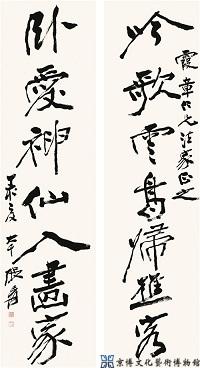 霞章仁兄法家正之
吟歌雲鳥歸樵谷
卧愛神仙入畫家
大千張爰
京博文化藝術博物館